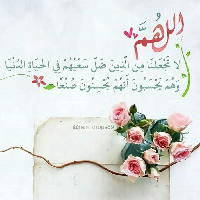 اللهُمَّ
لا تجْعَلنَا مِن الَّذِينَ ضَلَّ سَعْيُهُمْ فِي الحَيَاةِ الدُّنْيَا
وَهُمْ يَحْسَبُونَ أَنَّهُمْ يُحْسِنُونَ صُنْعًا